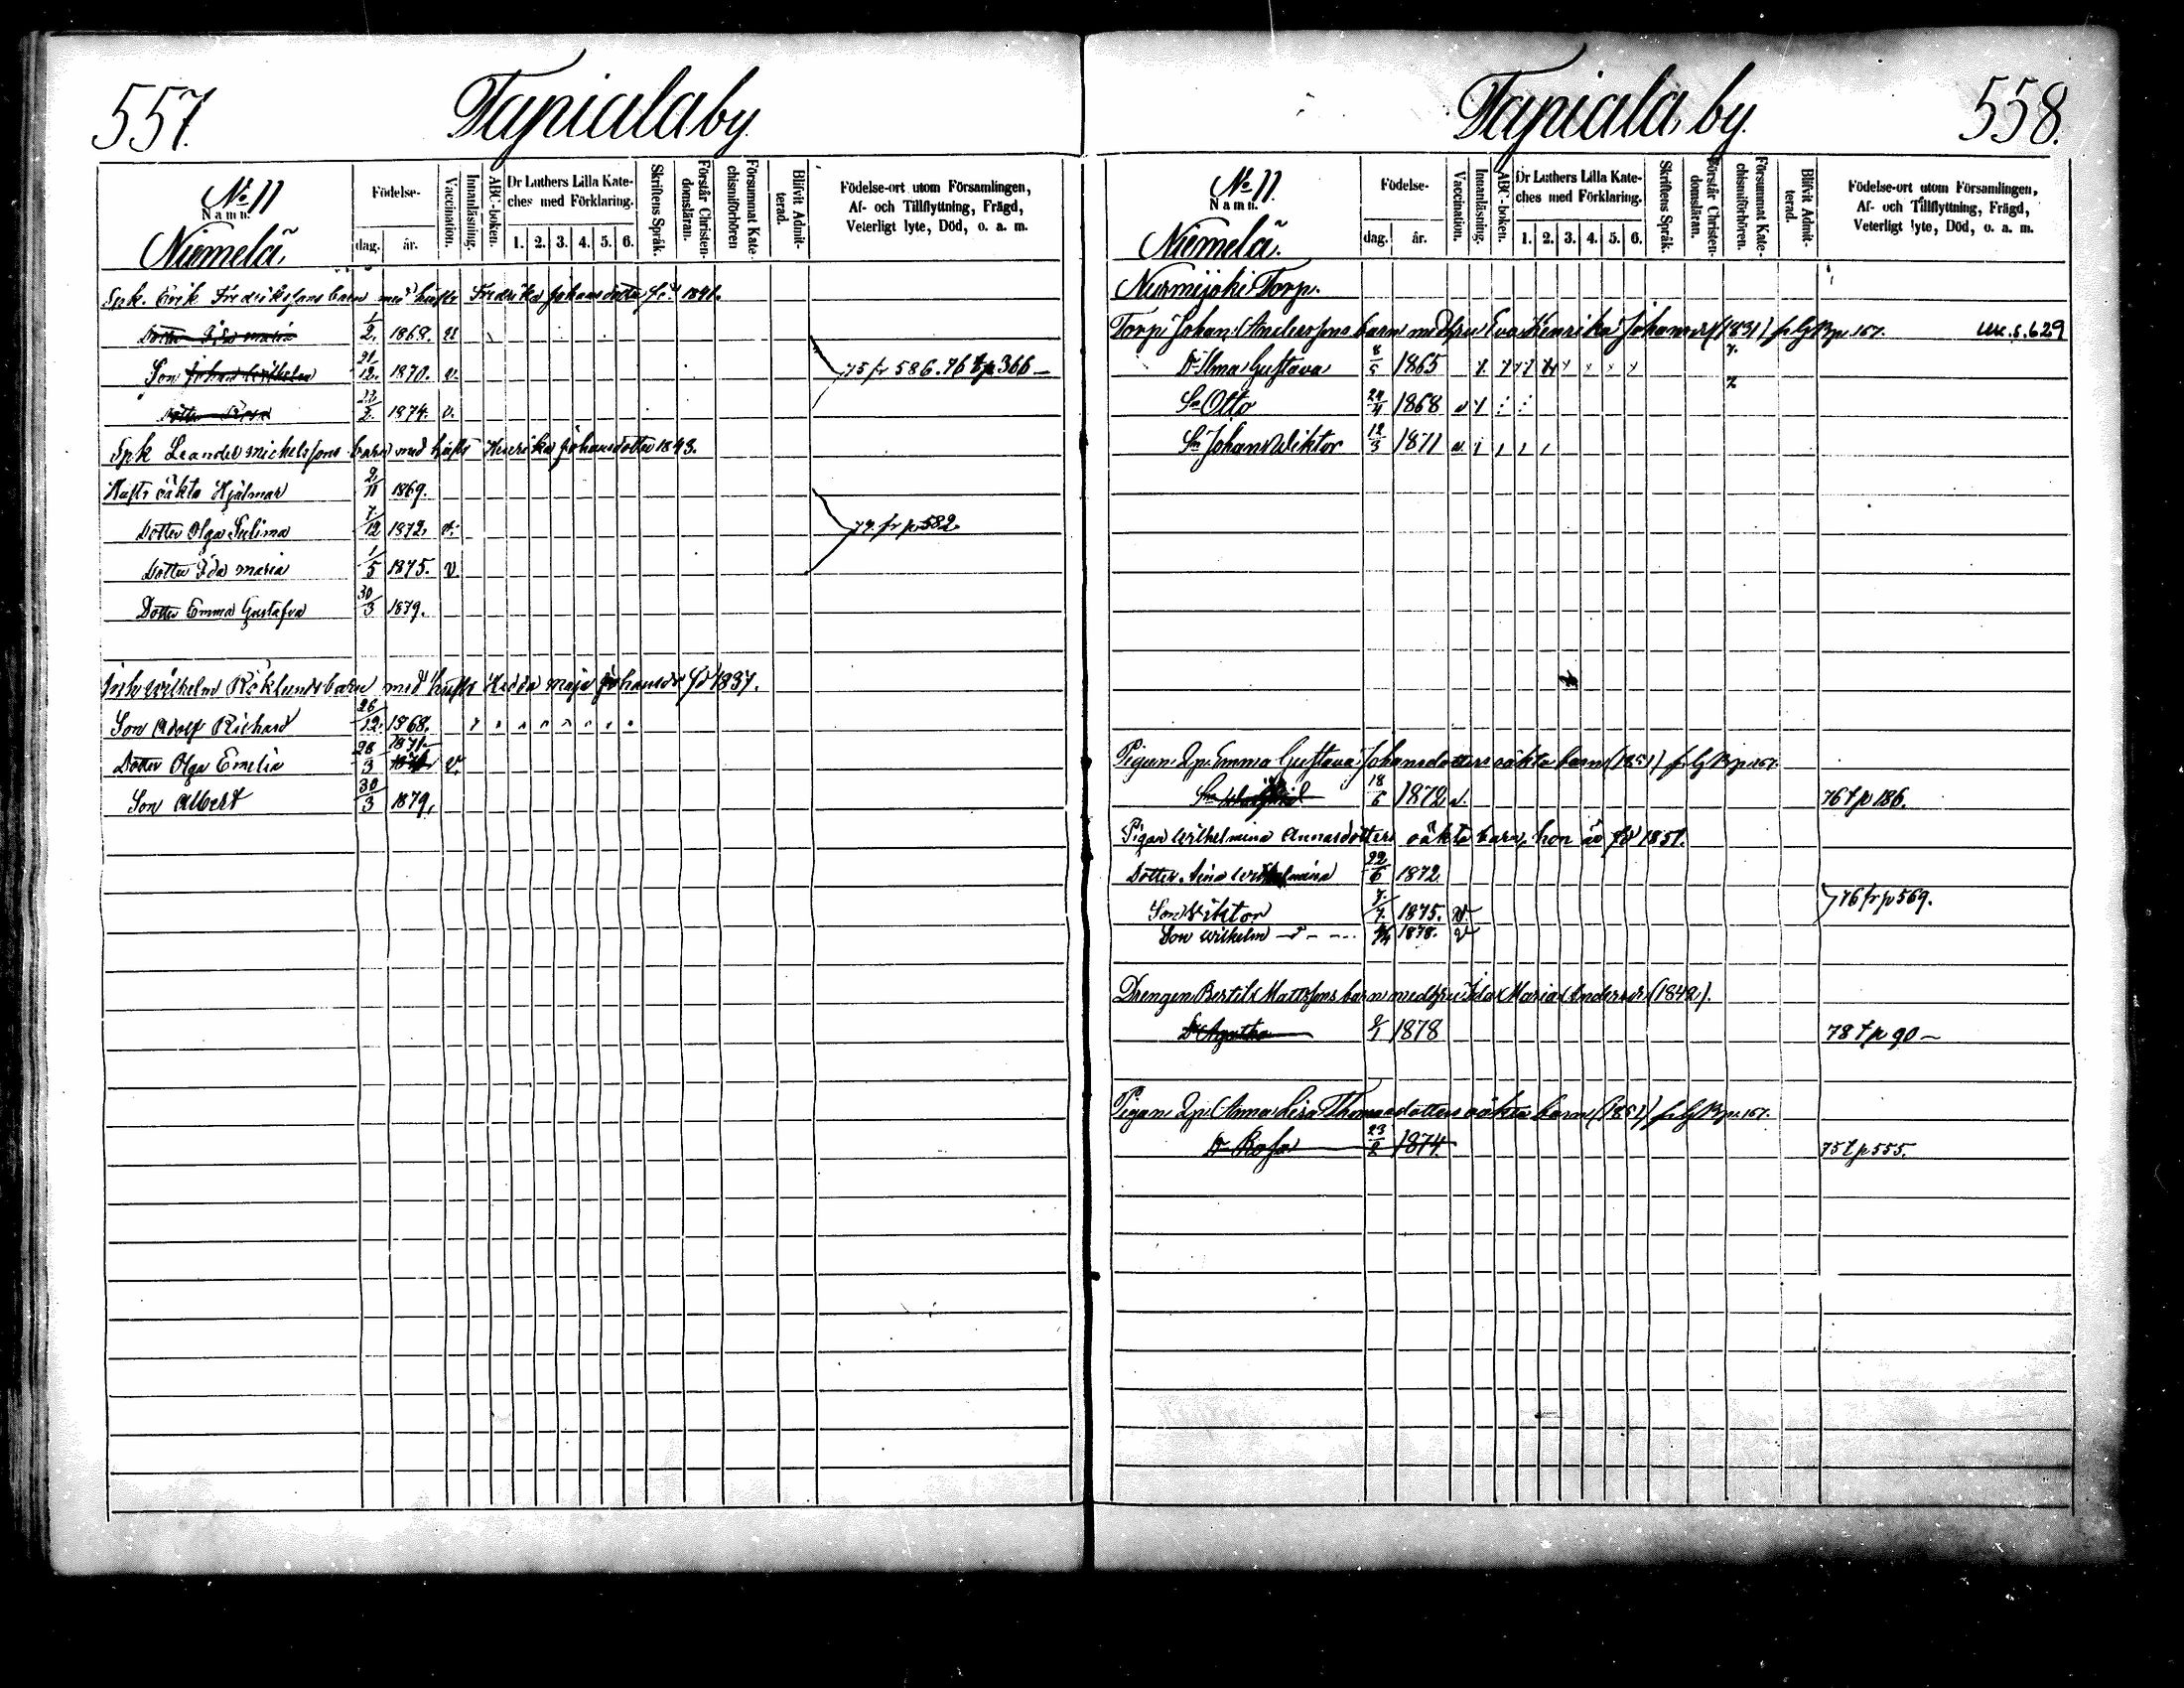 557.
Tapiala by
No 11
Namn.
Niemelä.
Födelse-
dag.
år.
Vaccination.
Innanläsning.
ABC-boken.
Dr Luthers Lilla Kate-
ches med Förklaring.
1. 2. 3. 4. 5. 6.
Skriftens Språk.
Förstår Christen-
domsläran.
Försummat Kate-
chismiförhören
Blifvit Admit-
terad.
Födelse-ort utom Församlingen,
Af- och Tillflyttning, Frägd,
Veterligt lyte, Död, o. a. m.
Spk. Erik Fredrikssons barn med hustr Fredrika Johansdotter fd 1841.
Dotter Ida Maria 1/2. 1868. v
Son Johan Wilhelm 21/12. 1870. v. 75 fr 586. 76 t p 366 —
Dotter 2. 1874. v.
Spk Leander Michelssons barn med hustr Henrika Johansdotter 1843.
Hustr oäkta Hjalmar 2/11 1869.
Dotter Olga Selima 7/12 1872. v. 77. fr p 582.
Dotter Ida Maria 1/5 1875. v.
Dotter Emma Gustafva 30/3 1879.
Wilhelm Röklunds barn med hustr Hedda Maja Johansdr fd 1837.
Son Adolf Richard 26/12. 1868.
Dotter Olga Emelia 28/3 1871. v.
Son Albert 30/3 1879.
558.
Tapiala by.
No 11.
Namn.
Niemelä.
Födelse-
dag.
år.
Vaccination.
Innanläsning.
ABC-boken.
Dr Luthers Lilla Kate-
ches med Förklaring.
1. 2. 3. 4. 5. 6.
Skriftens Språk.
Förstår Christen-
domsläran.
Försummat Kate-
chismiförhören.
Blifvit Admit-
terad.
Födelse-ort utom Församlingen,
Af- och Tillflyttning, Frägd,
Veterligt lyte, Död, o. a. m.
Nurmijoki Torp.
Torp. Johan Anderssons barn med hru Eva Henrika Johansdr (1831) fr G B p. 167. s. 629
Dr Ilma Gustava 8/5 1865
Sn Otto 24/4 1868 v
Sn Johan Wiktor 12/3 1871 v.
Pigan Emma Gustava Johansdotters oäkta barn (1851) fr G B p. 167.
Sn 18/6 1872 v. 76 t p 186.
Pigan Wilhelmina Annasdotters oäkta barn, hon är fd 1851.
Dotter Aina Wilhelmina 22/6 1872.
Son Viktor 7/7. 1875. v. 76 fr p 569.
Son Wilhelm 1878. v
Drengen Bertil Mattssons barn med hru Ida Maria Andersdr (1842).
Dr Agatha 2/1 1878 78 t p 90 —
Pigan Anna Lisa Thomasdotters oäkta barn (1851) fr G B p. 167.
Dr Rosa 23/2 1874. 75 t p 555.